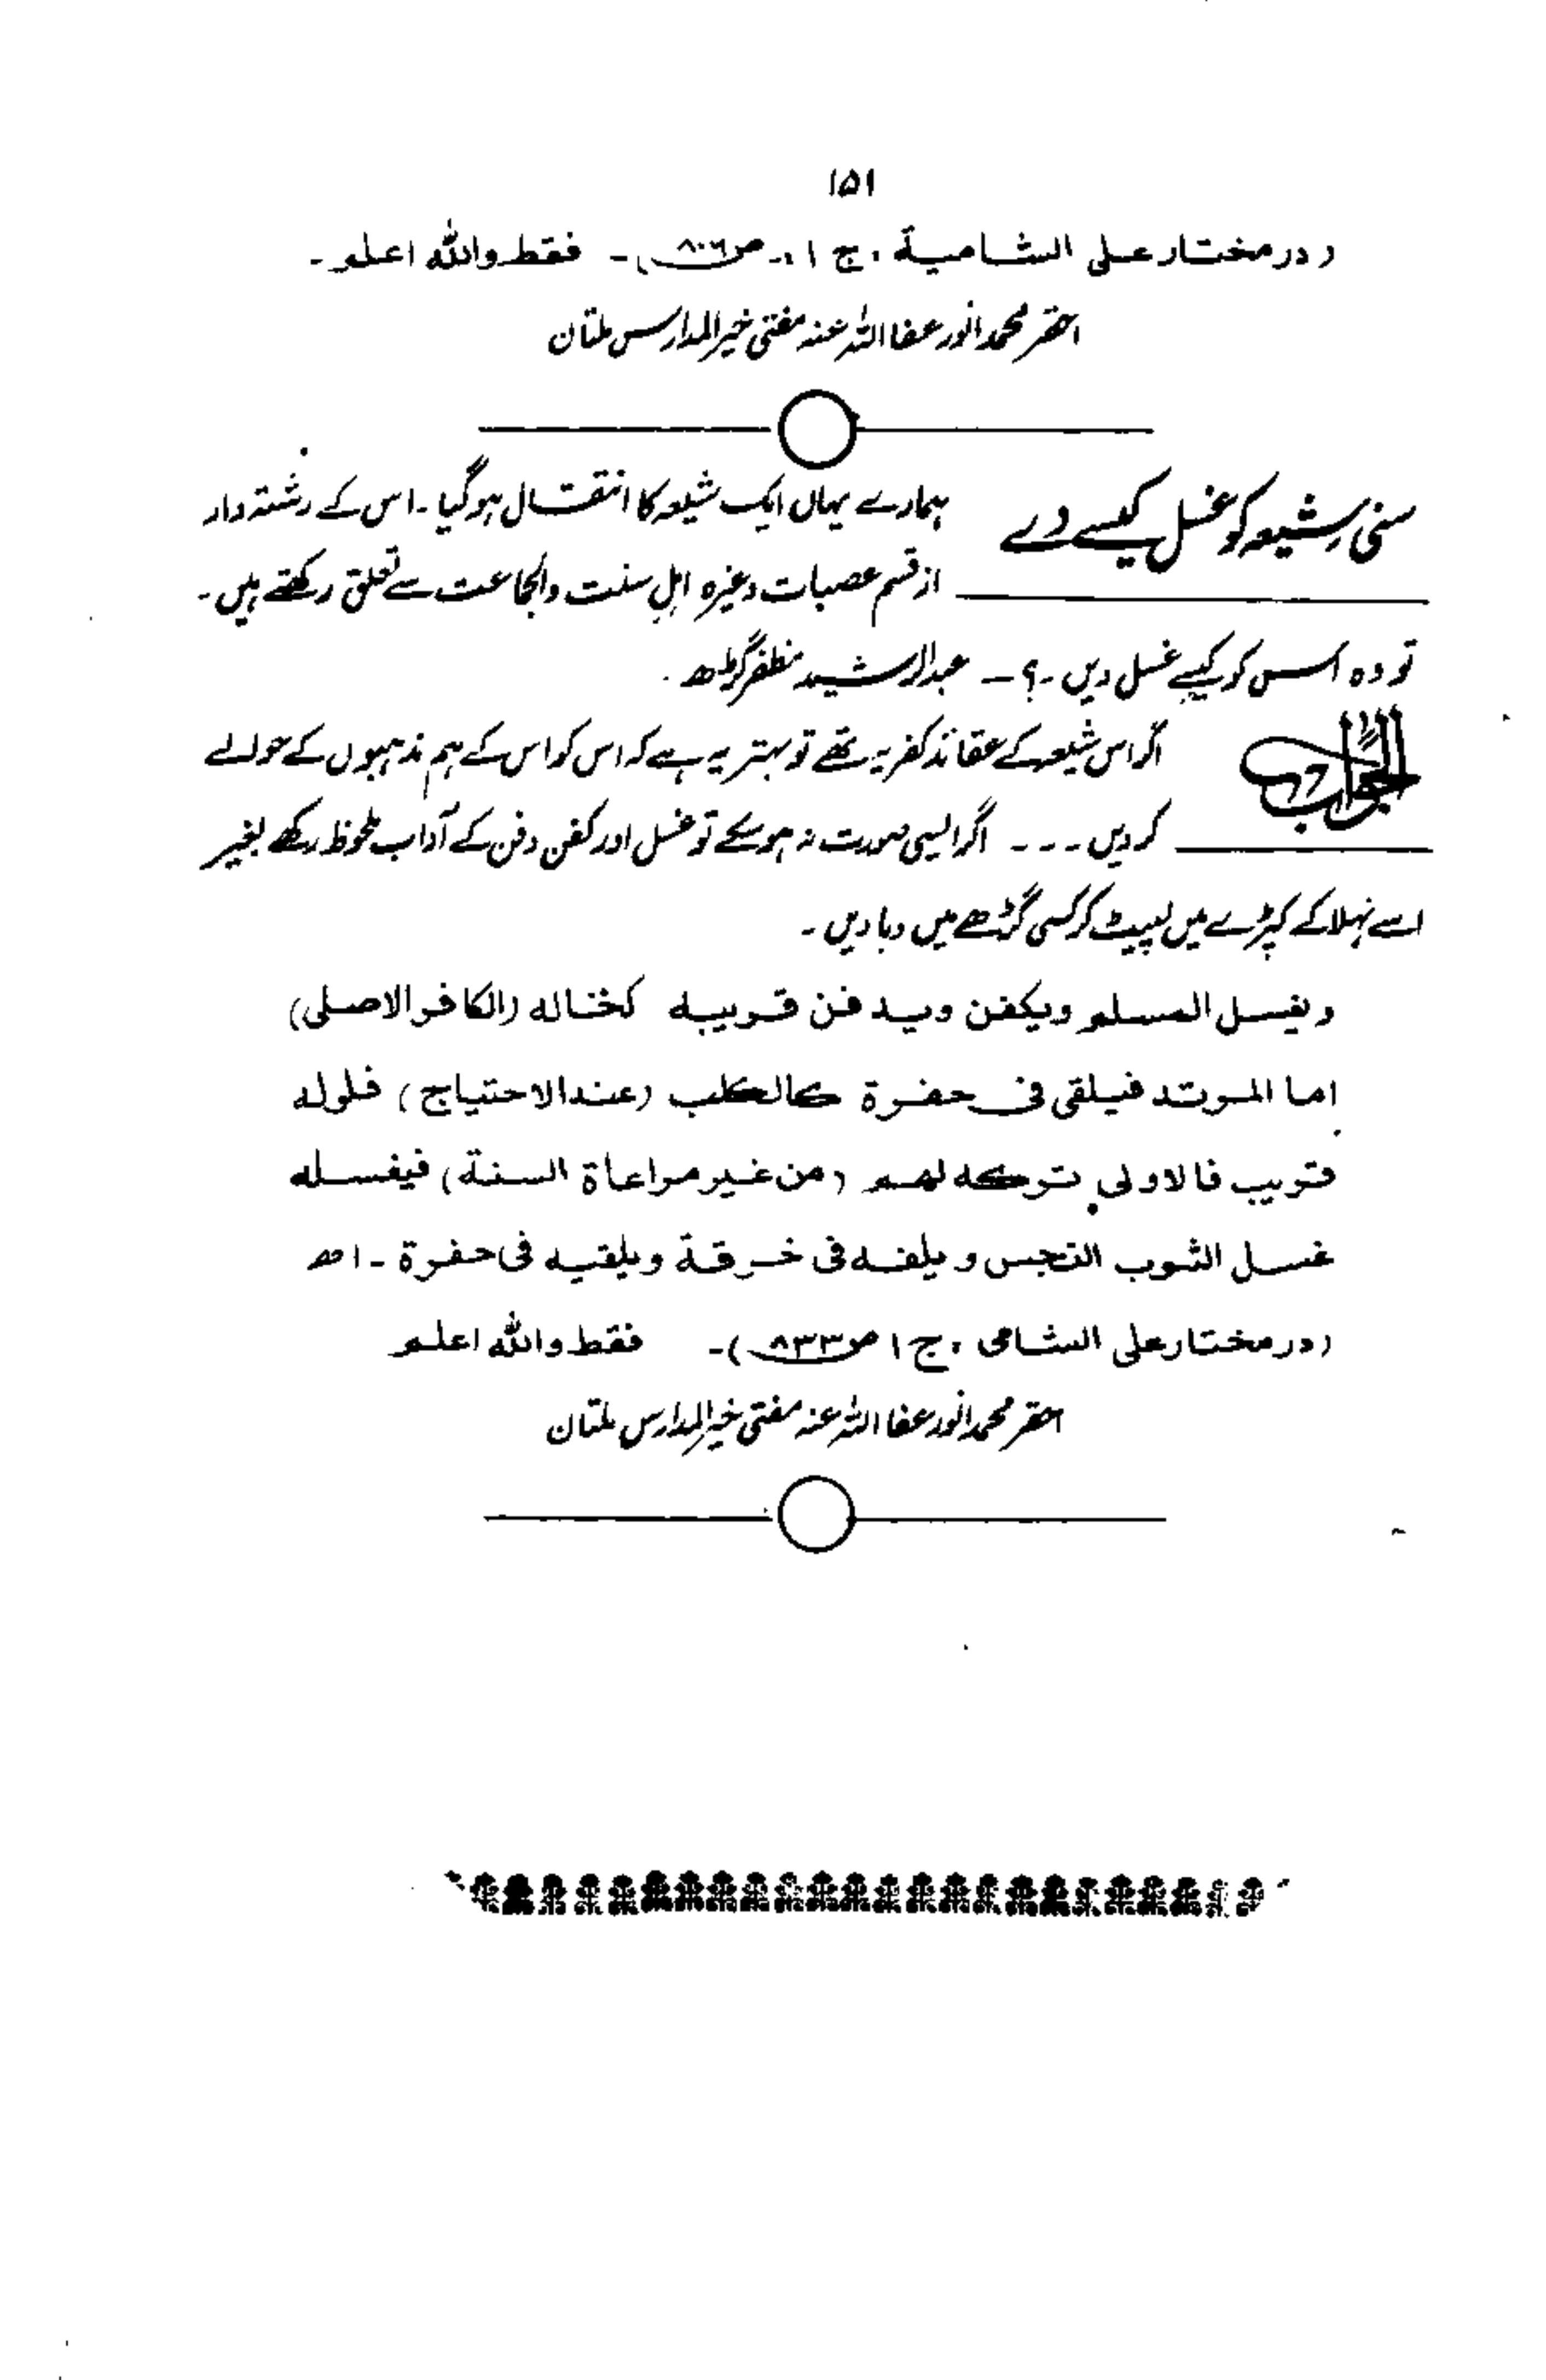 ۱۵۱
(درمختار علی الشامیة، ج ۱، ص۸۰۶)۔ فقط واللہ اعلم۔
احقر محمد انور عفا اللہ عنہ مفتی خیر المدارس ملتان
سنی شیعہ کو غسل کیسے دے
ہمارے یہاں ایک شیعہ کا انتقال ہوگیا۔ اس کے رشتہ دار
از قسم عصبات وغیرہ اہلِ سنت والجماعت سے تعلق رکھتے ہیں۔
تو وہ اس کو کیسے غسل دیں۔؟۔ عبدالرشید مظفر گڑھ۔
الجواب
اگر اس شیعہ کے عقائد کفریہ تھے تو بہتر یہ ہے کہ اس کو اس کے ہم مذہبوں کے حوالے
کر دیں۔۔۔ اگر ایسی صورت نہ ہو سکے تو غسل اور کفن دفن کے آداب ملحوظ رکھے بغیر
اسے نہلا کے کپڑے میں لپیٹ کر کسی گڑھے میں دبا دیں۔
ویغسل المسلم ویکفن ویدفن قریبہ کخالہ (الکافر الاصلی)
اما المرتد فیلقی فی حفرة کالکلب (عند الاحتیاج) فلو لہ
قریب فالاولی ترکہ لہم (من غیر مراعاة السنة) فیغسلہ
غسل الثوب النجس ویلفہ فی خرقة ویلقیہ فی حفرة۔ اھ
(درمختار علی الشامی، ج ۱ ص۸۳۳)۔ فقط واللہ اعلم
احقر محمد انور عفا اللہ عنہ مفتی خیر المدارس ملتان